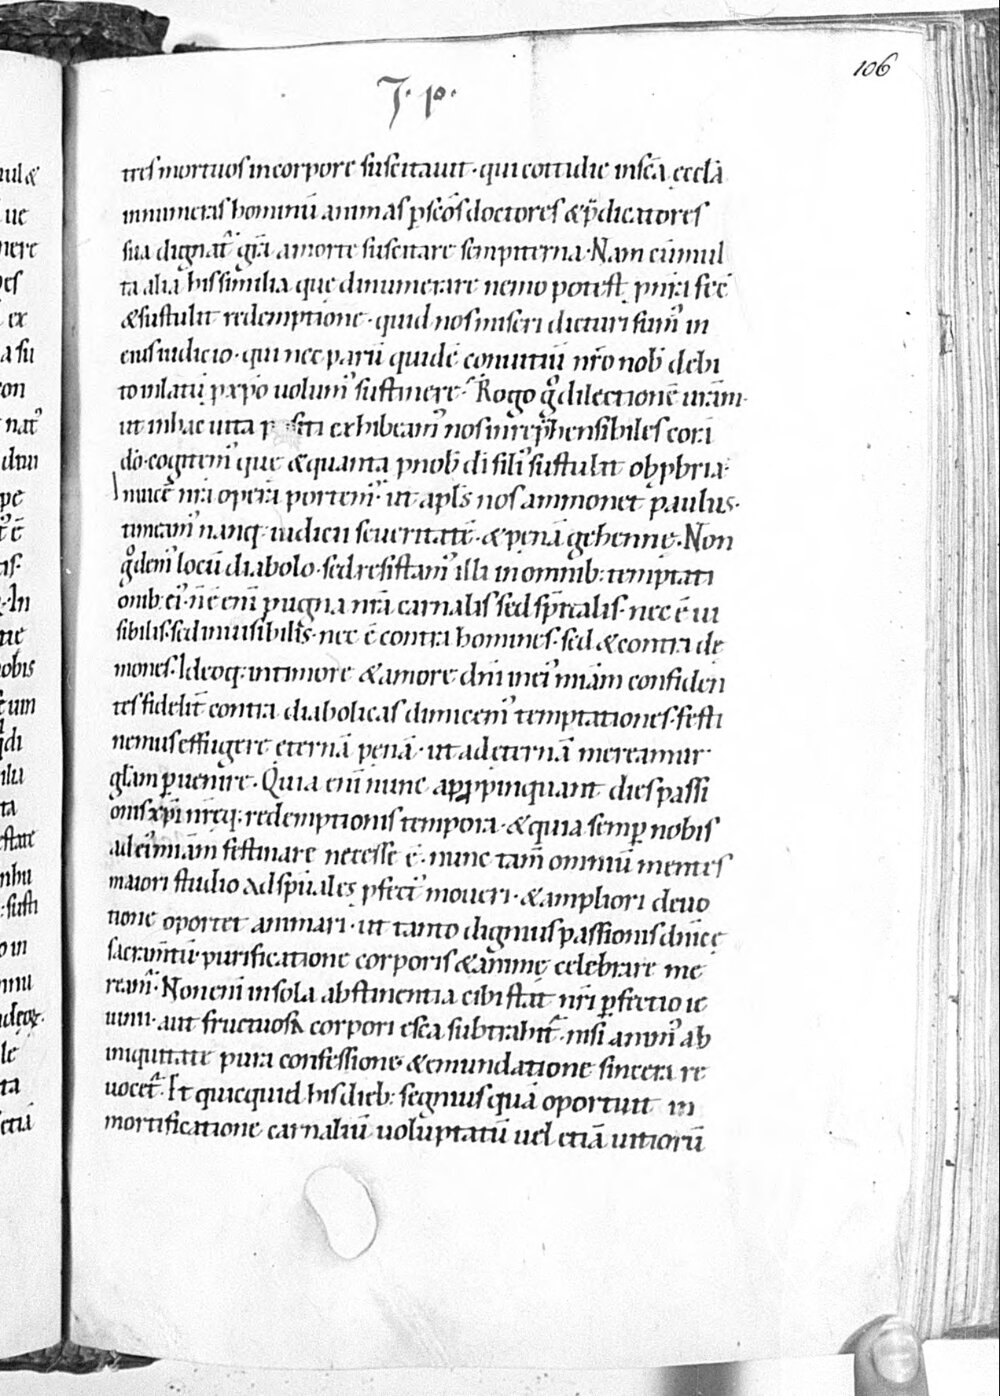 106
J. p.
tres mortuos in corpore suscitauit · qui cottidie in scā ęcclā
innumeras hominū animas p scōs doctores & p̄dicatores
sua dignat᷑ grā a morte suscitare sempiterna · Nam cū mul
ta alia his similia que dinumerare nemo potest p nr̄a fec̄
& sustulit redemptione · quid nos miseri dicturi sum᷒ in
eius iudicio · qui nec parū quidē conuitiū nr̄o nob̄ debi
to inlatū p xp̄o uolum᷒ sustinere · Rogo g̊ dilectionē urām·
ut in hac uita exhibeam᷒ nos inrep̄hensibiles corā
dō · cogitem᷒ que & quanta p nob̄ dī fili᷒ sustulit obp̄bria·
Inuicē nr̄a opera portem᷒ · ut apl̄s nos ammonet paulus·
timeam᷒ nanq; iudicii seueritatē · & penā gehenne · Non
g̊ dem᷒ locū diabolo · sed resistam᷒ illi in omnib; temptati
onib; ei᷒ · n̄ ē enī pugna nr̄a carnalis sed sp̄ritalis · nec ē ui
sibilis · sed inuisibilis · nec ē contra homines · sed & contra dę
mones · Ideoq; in timore & amore dn̄i in ei᷒ mīam confiden
tes fidelit̄ contra diabolicas dimicem᷒ temptationes · festi
nemus effugere eternā penā · ut ad eternā mereamur
gl̄am puenire · Quia enī nunc appropinquant dies passi
onis xp̄i nr̄eq; redemptionis tempora · & quia semp nobis
ad ei᷒ mīam festinare necesse ē · nunc tam̄ omniū mentes
maiori studio ad sp̄uales pfect᷒ moueri · & ampliori deuo
tione oportet animari · ut tanto digni᷒ passionis dn̄icę
sacramtū purificatione corporis & animę celebrare me
ream᷒ · Non enī in sola abstinentia cibi stat nr̄i pfectio ie
iunii · aut fructuosa corpori esca subtrahit᷑ · nisi anim᷒ ab
iniquitate pura confessione & emundatione sincera re
uocet᷑ · Et quicquid his dieb; segnius quā oportuit in
mortificatione carnaliū uoluptatū uel etiā uitiorū